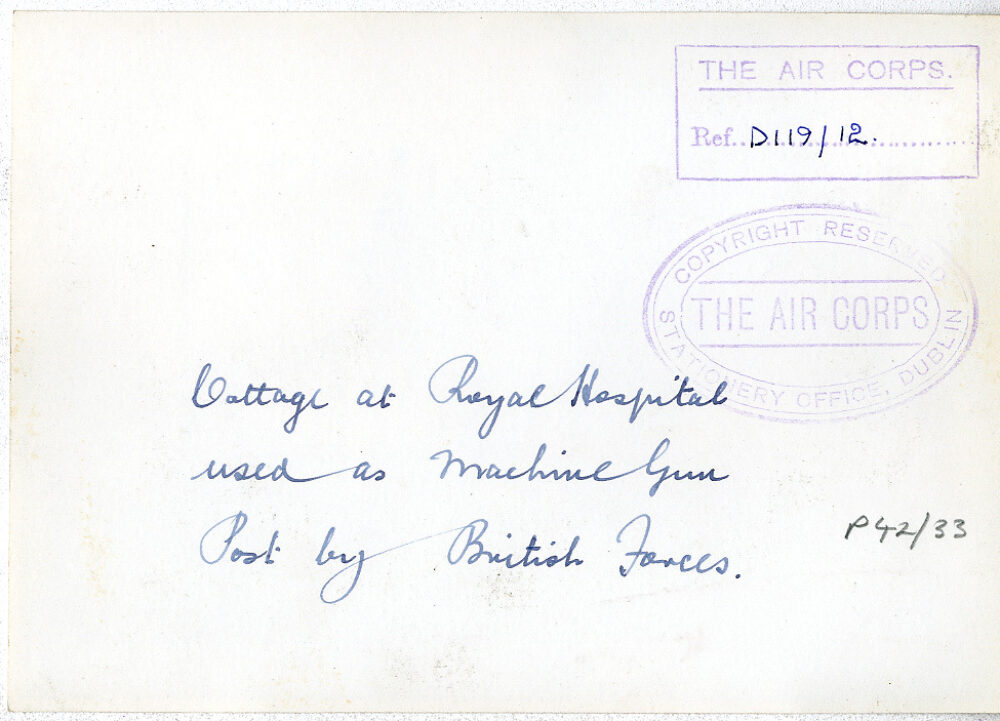 THE AIR CORPS.
Ref. D119/12.
COPYRIGHT RESERVED
THE AIR CORPS
STATIONERY OFFICE, DUBLIN
Cottage at Royal Hospital
used as Machine Gun
Post by British Forces.
P42/33